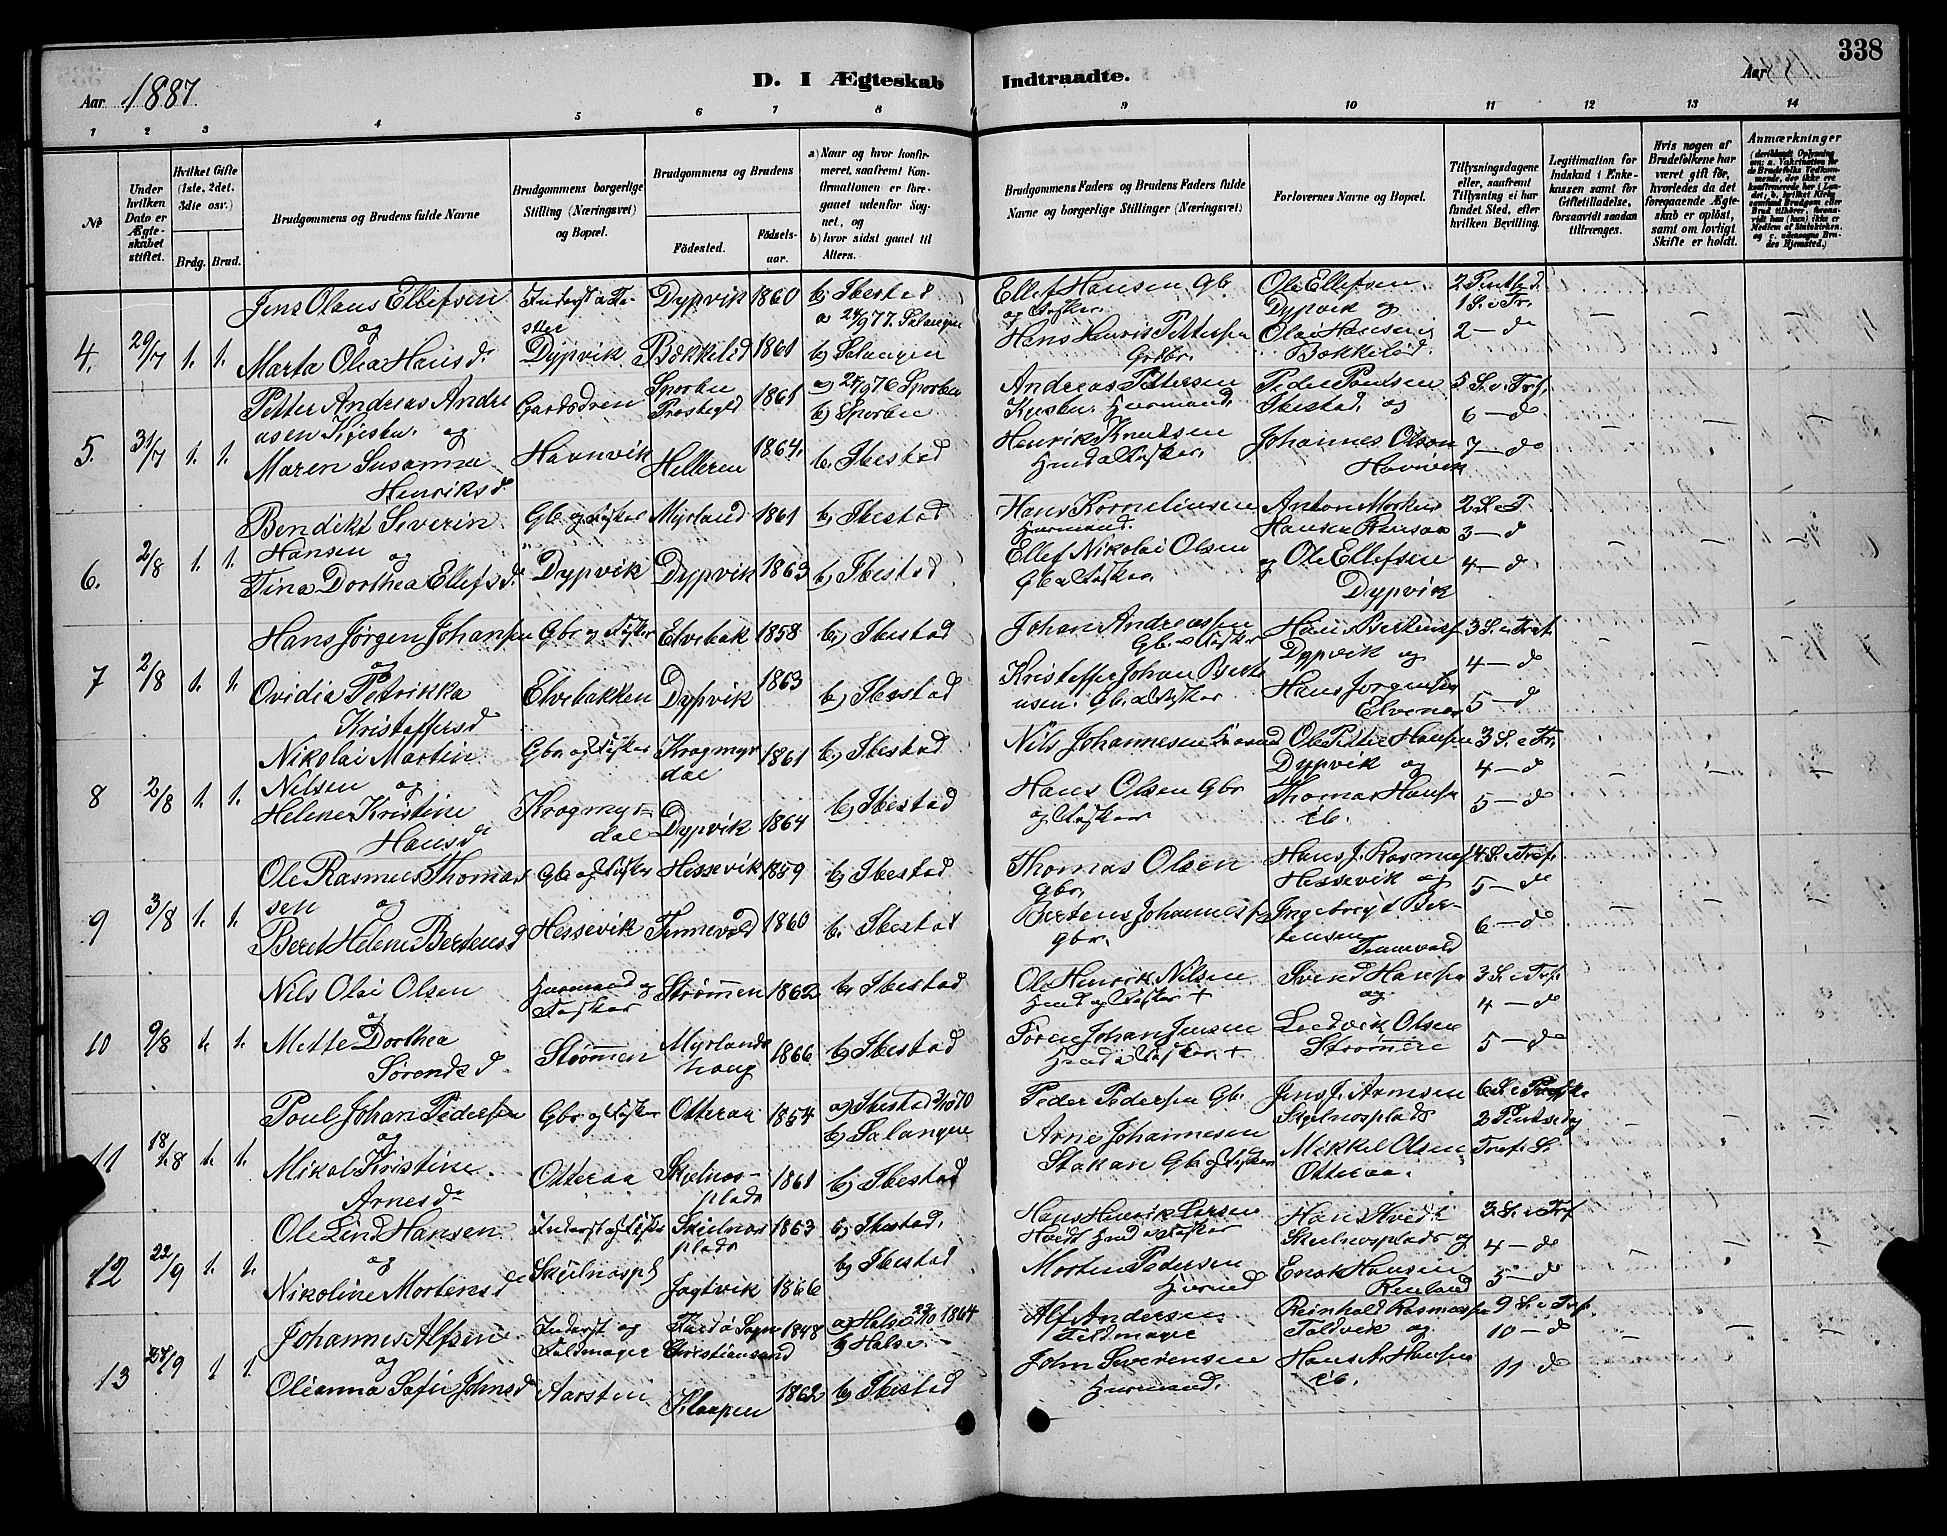 338
Aar 1887.
D. I Ægteskab Indtraadte.
Aar
1 2 3 4 5 6 7 8 9 10 11 12 13 14
№
Under hvilken Dato er Ægteskabet stiftet.
Hvilket Gifte (1ste, 2det, 3die osv.)
Brdg. Brud.
Brudgommens og Brudens fulde Navne
Brudgommens borgerlige Stilling (Næringsvei) og Bopæl.
Brudgommens og Brudens
Fødested.
Fødselsaar.
a) Naar og hvor konfirmeret, saafremt Konfirmationen er foregaaet udenfor Sognet, og
b) hvor sidst gaaet til Alters.
Brudgommens Faders og Brudens Faders fulde Navne og borgerlige Stillinger (Næringsvei)
Forlovernes Navne og Bopæl.
Tillysningsdagene eller, saafremt Tillysning ei har fundet Sted, efter hvilken Bevilling.
Legitimation for Indskud i Enkekassen samt for Giftetilladelse, forsaavidt saadan tiltrænges.
Hvis nogen af Brudefolkene har været gift før, hvorledes da det foregaaende Ægteskab er opløst, samt om lovligt Skifte er holdt.
Anmærkninger
4. 29/7 1. 1.
Jens Olaus Ellefsen
og
Marta Olea Hansd.
Dypvik
Dypvik 1860
Bækkelid 1861
b) Ibestad
a 24/9 77. Salangen
b) Salangen
Ellef Hansen Gb.
og Fisker.
Hans Henrik Pettersen
Ole Ellefsen
Dypvik og
Olai Hansen
Bækkelid.
2 Pintsed.
1 S. e Tr.
2 — d
5. 31/7 1. 1.
Petter Andreas Andre
asen Kjesbu. og
Maren Susanna
Henriksd.
Gaardsdreng
Havnvik
Sparbu
Præstegld 1861
Helleren 1864.
a) 24/9 76 Sparbu
b) Sparbu
b. Ibestad
Andreas Pettersen
Kjesbu. Huusmand.
Henrik Knudsen
Hmd & Fisker.
Peder Poulsen
Ibestad. og
Johannes Olsen
Havnvik
5 S. e Tref.
6 — d
7 — do
6. 2/8 1. 1.
Bendikt Severin
Hansen og
Tina Dorthea Ellefsd.
Gb. og Fisker
Dypvik
Myrland 1861
Dypvik 1863
b) Ibestad
b) Ibestad
Hans Korneliusen
Huusmand.
Ellef Nikolai Olsen
Gb & Fisker.
Anton Morkus
Hansen Rensaa
og Ole Ellefsen
Dypvik
2 S. e T.
3 — d
4 — d
7 2/8 1. 1.
Hans Jørgen Johansen
og
Ovidia Petrikka
Kristoffersd
Gbr og Fisker
Elvebakken
Elvebak 1858
Dypvik 1863
b) Ibestad
b) Ibestad
Johan Andreassen
Gb. & Fisker
Kristoffer Johan Bert
ensen. Gb. & Fisker
Hans Bertensen
Dypvik og
Hans Jørgensen
Elvenes
3 S. e Tref.
4 — d
5 — d
8 2/8 1. 1.
Nikolai Martin
Nilsen og
Helene Kristine
Hansd
Gbr og Fisker
Krogmyrdal
Krogmyrdal 1861
Dypvik 1864
b) Ibestad
b) Ibestad
Nils Johannesen
Hans Olsen Gbr
og Fisker
Ole Petter Hansen
Dypvik og
Thomas Hansen
ib.
3 S. e Tr.
4 — d
5 — d
9 3/8 1. 1.
Ole Rasmus Thomas
sen og
Beret Helene Bertensd
Gb og Fisker
Hessevik
Hessevik 1859
Tennevold 1860
b) Ibestad
b. Ibestad
Thomas Olsen
Gbr.
Bertens Johannessen
gbr.
Hans J. Rasmusen
Hessevik og
Ingebrigt Bertensen
4 S. e Tref.
5 — d
6 — d
10 9/8 1. 1.
Nils Olai Olsen
og
Mette Dorthea
Sørensd.
Huusmand og
Fisker
Strømmen
Strømmen 1862
Myrlandshaug 1866
b. Ibestad
b) Ibestad
Ole Henrik Nilsen
Hmd og Fisker +
Søren Johan Jensen
Hmd & Fisker +
Svend Hansen
og
Ludvik Olsen
Strømmen
3 S. e Tref.
4 — d
5 — d
11 18/8 1. 1.
Poul Johan Pedersen
og
Mikal Kristine
Arnesd.
Gbr og Fisker
Otteraa
Otteraa 1854
Skjelnesplads 1861
a) Ibestad 2/10 70
b) Salangen
b) Ibestad
Peder Pedersen Gb.
Arne Johannesen
Stakan Gb. og Fisker
Jens J. Arnesen
Skjelnesplads
Mikkel Olsen
Otteraa.
12 22/9 1. 1.
Ole Lind Hansen
og
Nikoline Mortensd
Inderst og Fisker
Skjelnespl
Skjelnesplads 1863
Jagtvik 1866
b) Ibestad.
b) Ibestad
Hans Henrik Larsen
Hvidt Hmd & Fisker
Morten Pedersen
Huusmd
Hans Hvidt
Skjelnesplads og
Enok Hansen
Renland
3 S. e Tref
4 — d
5 — d
13 27/9 1 1.
Johannes Alfsen
og
Oleanna Sofie Johnsd
Inderst og
Feldmager
Aarsten
Christiansand 1848
Klaapen 1862
a) Halse 23/10 1864
b) Halse.
b) Ibestad
Alf Andersen
Feldmager
John Severensen
Huusmand.
Reinhold Rasmussen
Foldvik og
Hans A. Hansen
ib.
9 S. e Tref.
10 — d
11 d